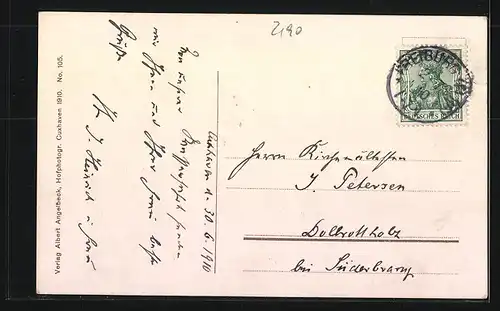 2190
Verlag Albert Angelbeck, Hofphotogr. Cuxhaven 1910. No. 105.
Cuxhaven d. 30.6.1910
Von unserer
senden
wir Ihnen und Ihrer Frau beste
Grüße
FREIBURG
DEUTSCHES REICH
Herrn Kirchenältesten
J. Petersen
Dollrottholz
bei Süderbrarup